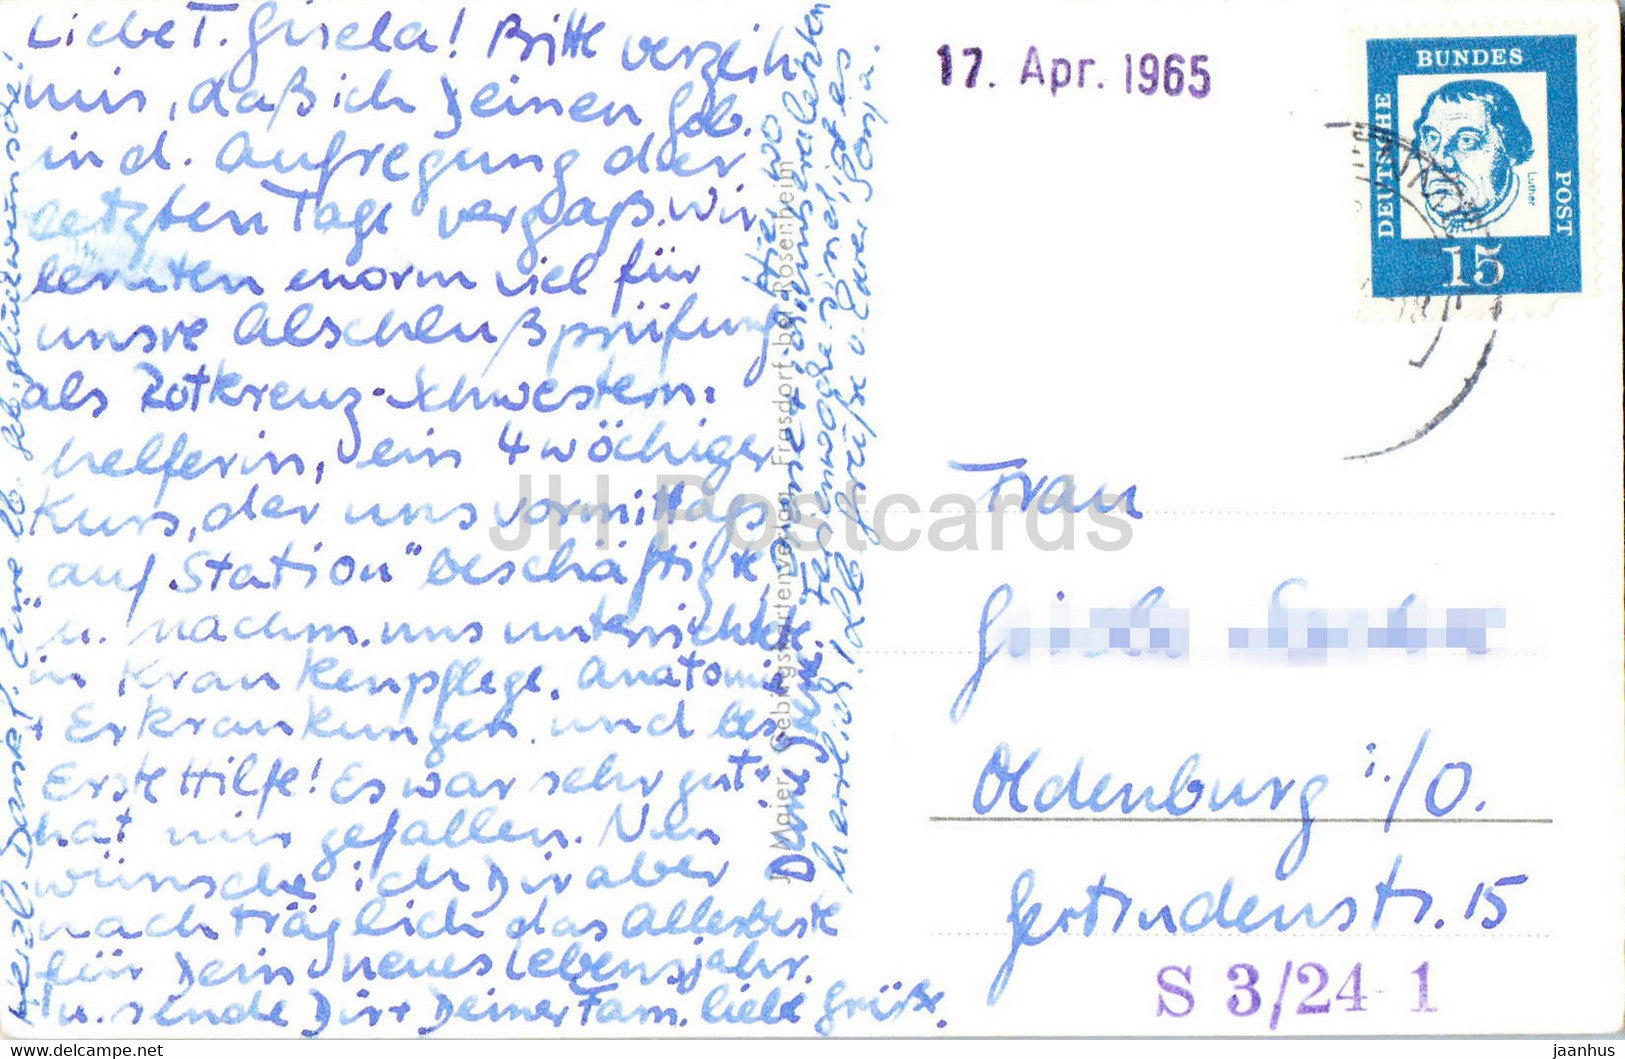 Liebe T. Gisela! Bitte verzeih
mir, daß ich Deinen Geb.
in d. Aufregung der
letzten Tage vergaß. Wir
lernten enorm viel für
unsre Abschlußprüfung
als Rotkreuz-Schwestern-
helferin, ein 4 wöchiger
Kurs, der uns vormittags
auf „Station" beschäftigte
u. nachm. uns unterrichtete
in Krankenpflege, Anatomie
+ Erkrankungen und bes.
Erste Hilfe! Es war sehr gut +
hat mir gefallen. Nun
wünsche ich Dir aber
nachträglich das Allerbeste
für Dein neues Lebensjahr.
u. sende Dir + Deiner Fam. liebe Grüße.
herzlich.! Lb Grüße v. Eurer Sonja.
Herzl. Dank f. Eure lb. Geb. glückwünsche!
J. Maier Gebirgskartenverlag Frasdorf bei Rosenheim
17. Apr. 1965
DEUTSCHE
BUNDES
POST
Luther
15
Frau
Oldenburg i./O.
Gertrudenstr. 15
S 3/24 1
JH Postcards
www.delcampe.net
jaanhus